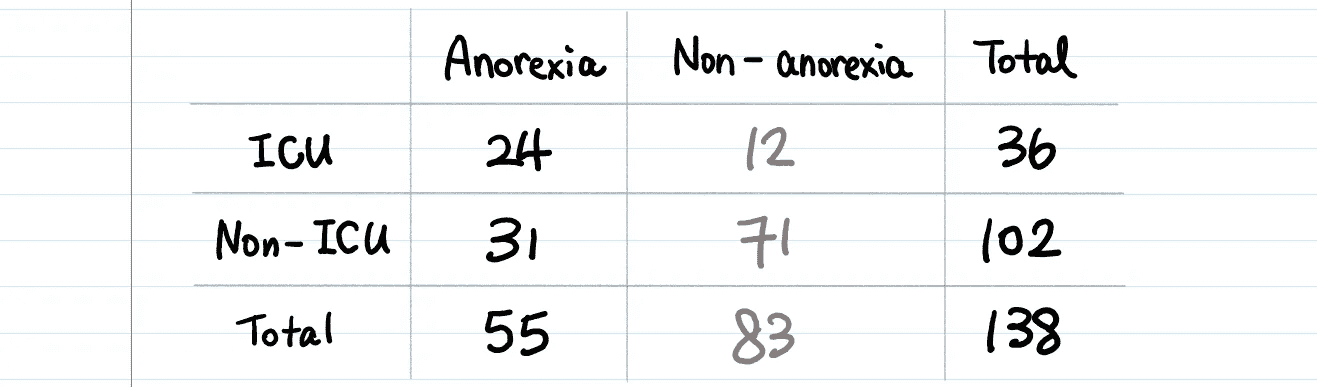 Anorexia Non-anorexia Total
ICU 24 12 36
Non-ICU 31 71 102
Total 55 83 138